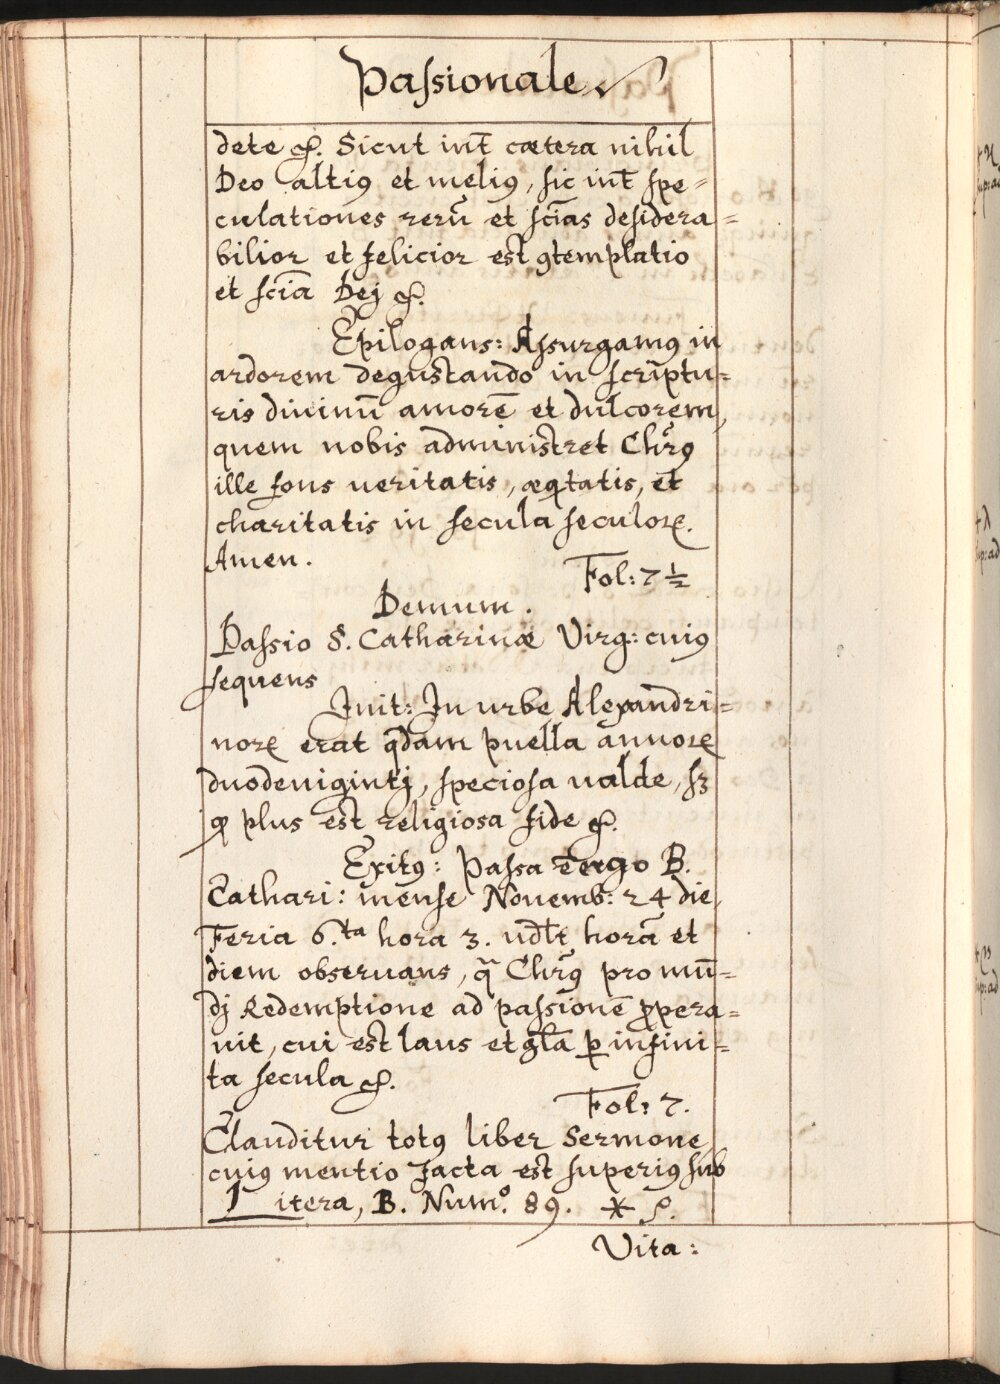 Passionale
dete &. Sicut int̃ cætera nihil
Deo altiꝰ et meliꝰ, sic int̃ spe=
culationes rerũ et scĩas desidera=
bilior et felicior est ꝯtemplatio
et scĩa Dej &.
Epilogans: Assurgamꝰ in
ardorem degustando in scriptu=
ris diuinũ amorẽ et dulcorem,
quem nobis administret Chrꝰ
ille fons ueritatis, æqtatis, et
charitatis in secula seculoꝝ.
Amen.
Fol: 7 ½
Demum.
Passio S. Catharinæ Virg: cuiꝰ
sequens
Init: In urbe Alexandri=
noꝝ erat qdam puella annoꝝ
duodeuigintj, speciosa ualde, sꝫ
qꝫ plus est religiosa fide &.
Exitꝰ: Passa ergo B.
Cathari: mense Nouemb: 24 die,
Feria 6.ta hora 3. udlt̃ horã et
diem obseruans, q̃ Chrꝰ pro mũ=
dj Redemptione ad passionẽ ꝓpera=
uit, cui est laus et glã ꝑ infini=
ta secula &.
Fol: 7.
Clauditur totꝰ liber Sermone
cuiꝰ mentio Jacta est superiꝰ sub
Litera, B. Num.º 89. * ſ.
Vita: